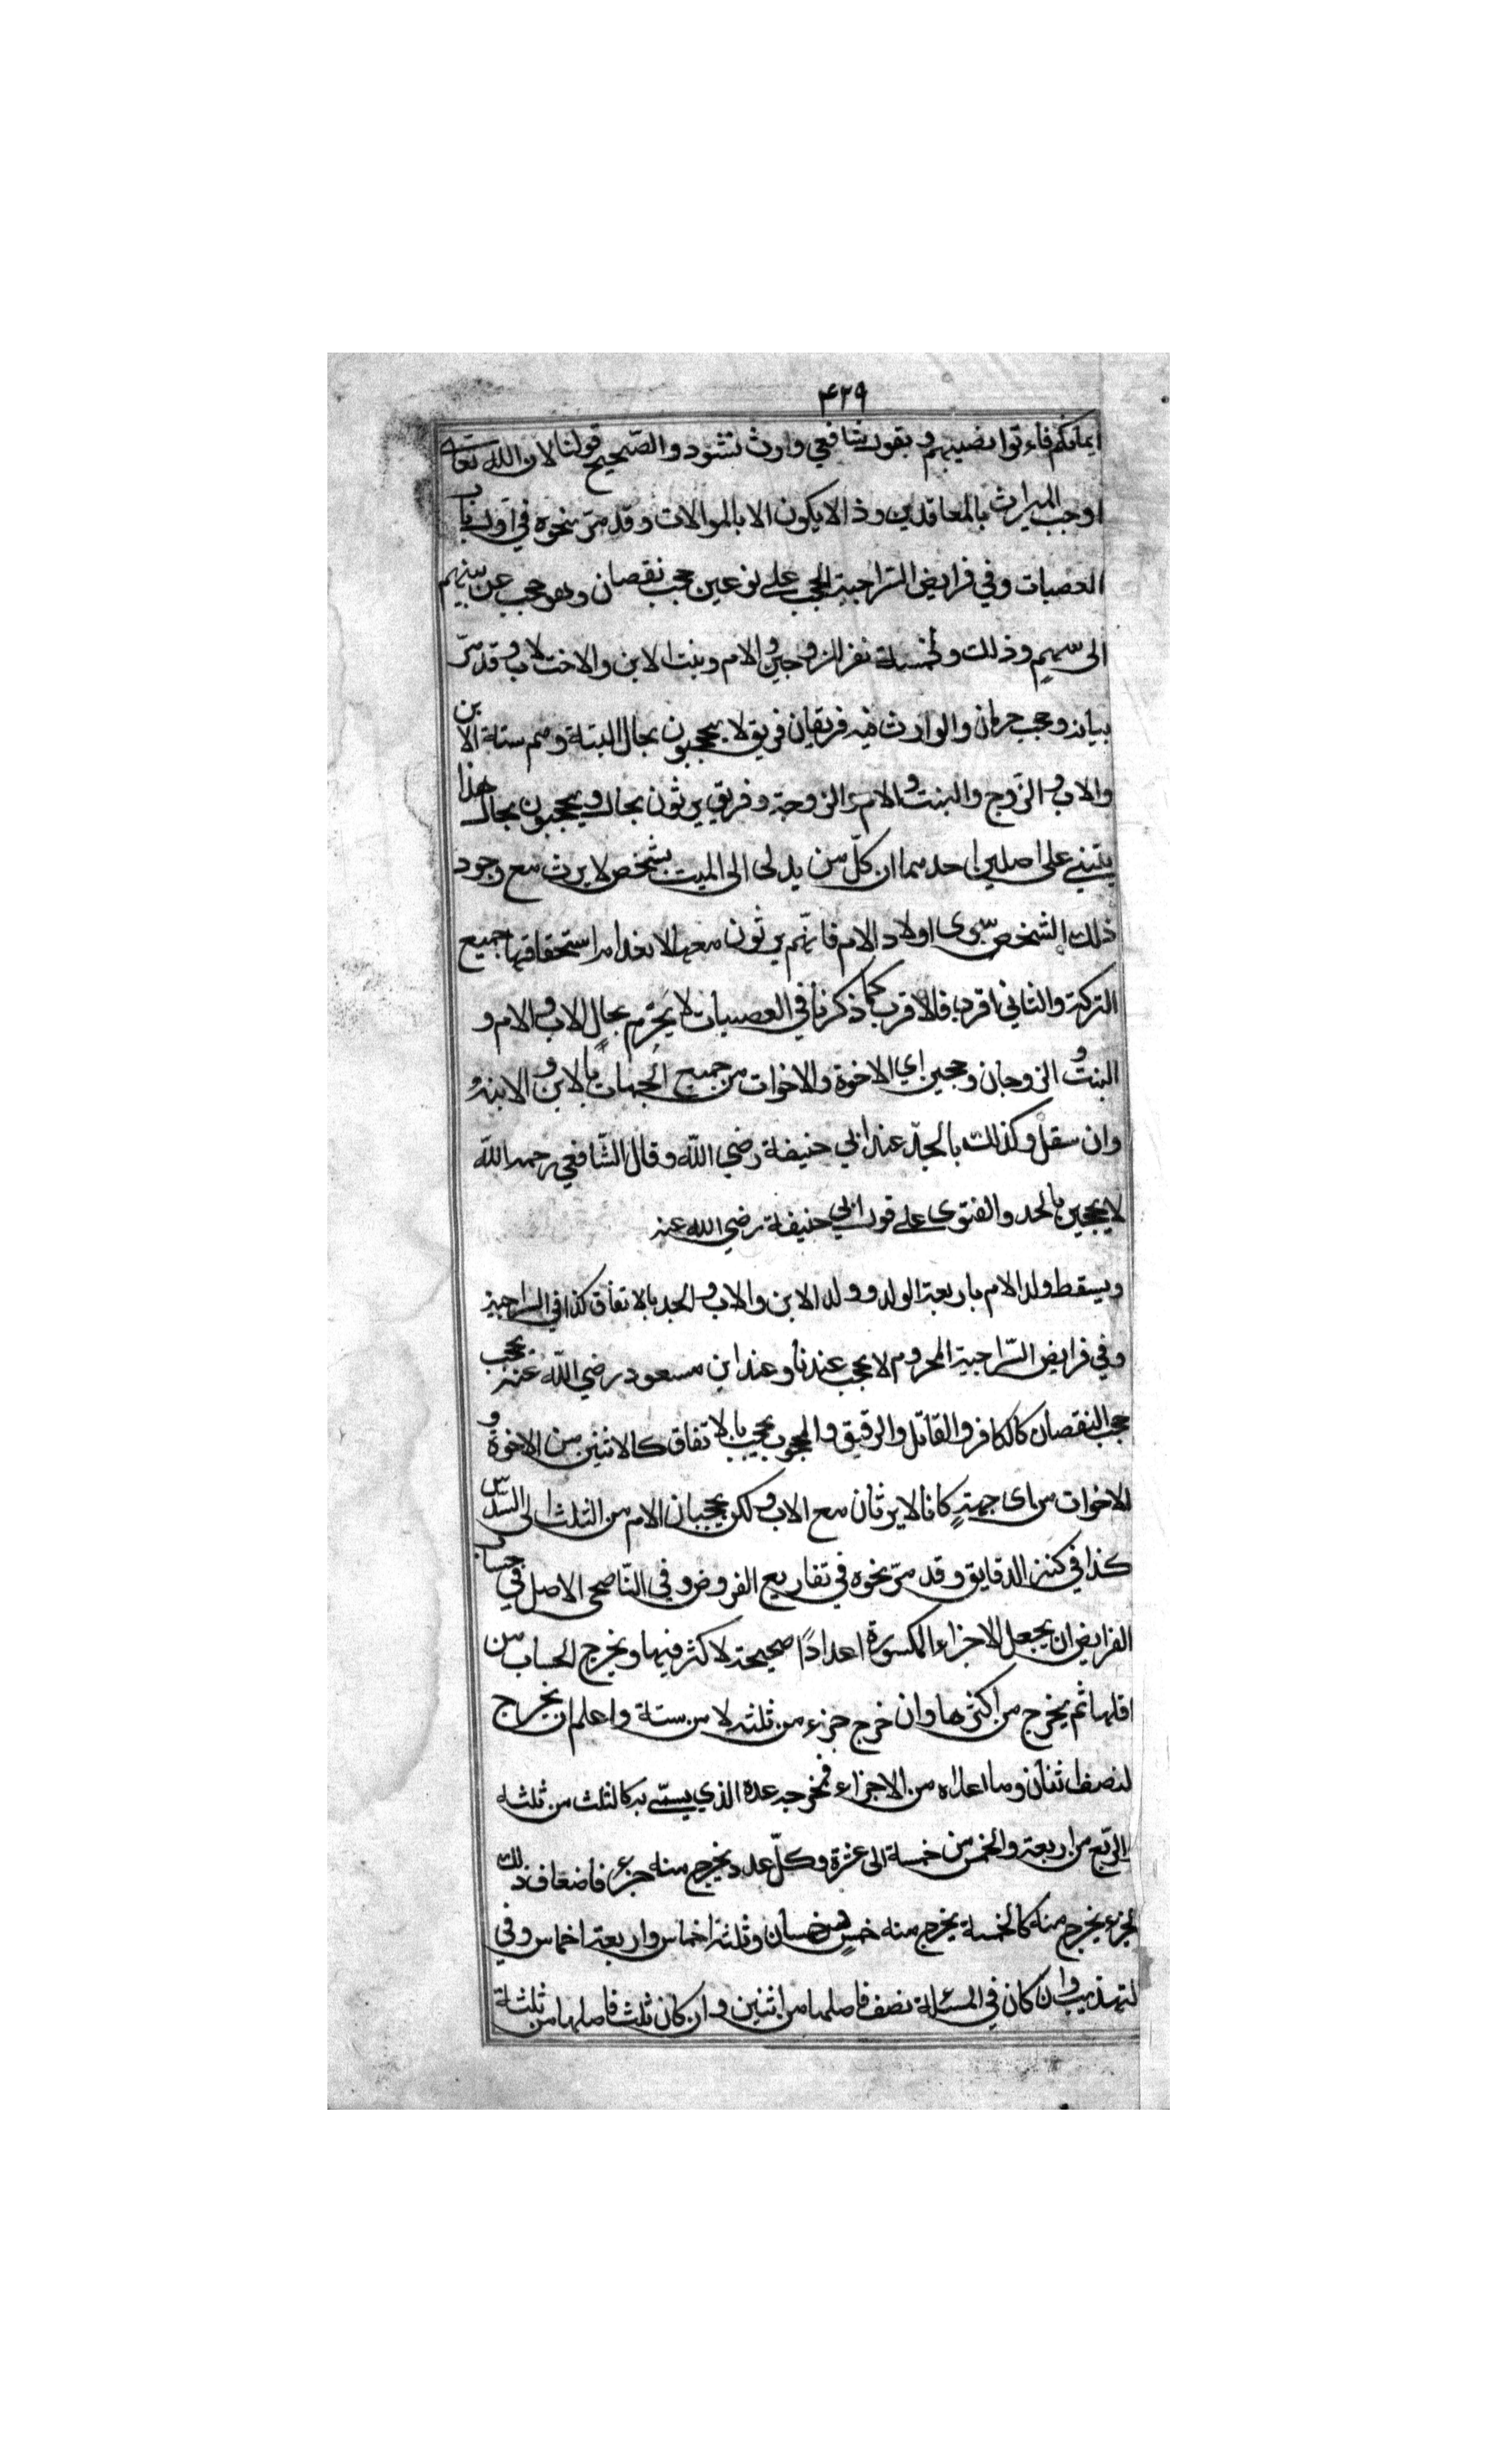 ۴۲۹
ايمانكم فاءتوا نصيبهم و بقول شافعي وارث نشود والصّحيح قولنا لان الله تعالى
اوجب الميراث بالمعاقدين وذا لايكون الا بالموالات وقد مرّ نحوه في اول باب
العصبات وفي فرايض السّراجية الحجب على نوعين حجب نقصان وهو حجب عن سهم
الى سهمٍ وذلك لخمسة نفر للزوجين والام وبنت الابن والاخت لاب وقد مرّ
بيانه وحجب حرمان والوارث فيه فريقان فريق لا يحجبون بحال البتة وهم ستة الابن
والاب والزوج والبنت والام والزوجة وفريق يرثون بحال ويحجبون بحال هذا
يبتني على اصلين احدهما ان كلّ من يدلى الى الميت بشخص لا يرث مع وجود
ذلك الشخص سوى اولاد الام فانّهم يرثون معها لانعدام استحقاقها جميع
التركة والثاني اقرب فالاقرب كما ذكرنا في العصبات لا يحرم بحالٍ الاب والام و
البنت و الزوجان وحجبن اي الاخوة والاخوات من جميع الجهات بالابن و الابنه
وان سفل وكذلك بالجدّ عند ابي حنيفة رضي الله وقال الشّافعي رحمه الله
لا يحجبن بالجد والفتوى على قول ابي حنيفة رضي الله عنه
ويسقط ولد الام باربعة الولد وولد الابن والاب والجد بالاتفاق كذا في السراجية
وفي فرايض السّراجية المحروم لا يحجب عندنا وعند ابن مسعود رضي اللّه عنه يحجب
حجب النقصان كالكافر والقاتل والرقيق والمحجوب يحجب بالاتفاق كالاثنين من الاخوة و
الاخوات من اى جهةٍ كانا لا يرثان مع الاب ولكن يحجبان الام من الثلث الى السدس
كذا في كنز الدقايق وقد مرّ نحوه في تفاريع الفروض وفي النّاصحى الاصل في حساب
الفرايض ان يجعل الاجزاء المكسورة اعدادًا صحيحة لا كثر فيها ويخرج الحساب من
اقلها ثم يخرج من اكثرها وان خرج جزء من ثلثه لا من ستة واعلم ان مخرج
لنصف اثنان وما اعداه من الاجزاء فمخرجه عدة الذي يسمّى به كالثلث من ثلثه
والربّع من اربعة والخمس من خمسة الى عشرة وكلّ عدد يخرج منه جزء فاضعاف ذلك
الجزء يخرج منه كالخمسة يخرج منه خمس وخمسان وثلثة اخماس واربعة اخماس وفي
لتهذيب وان كان في المسئلة نصف فاصلها من اثنين وان كان ثلث فاصلها من ثلثة